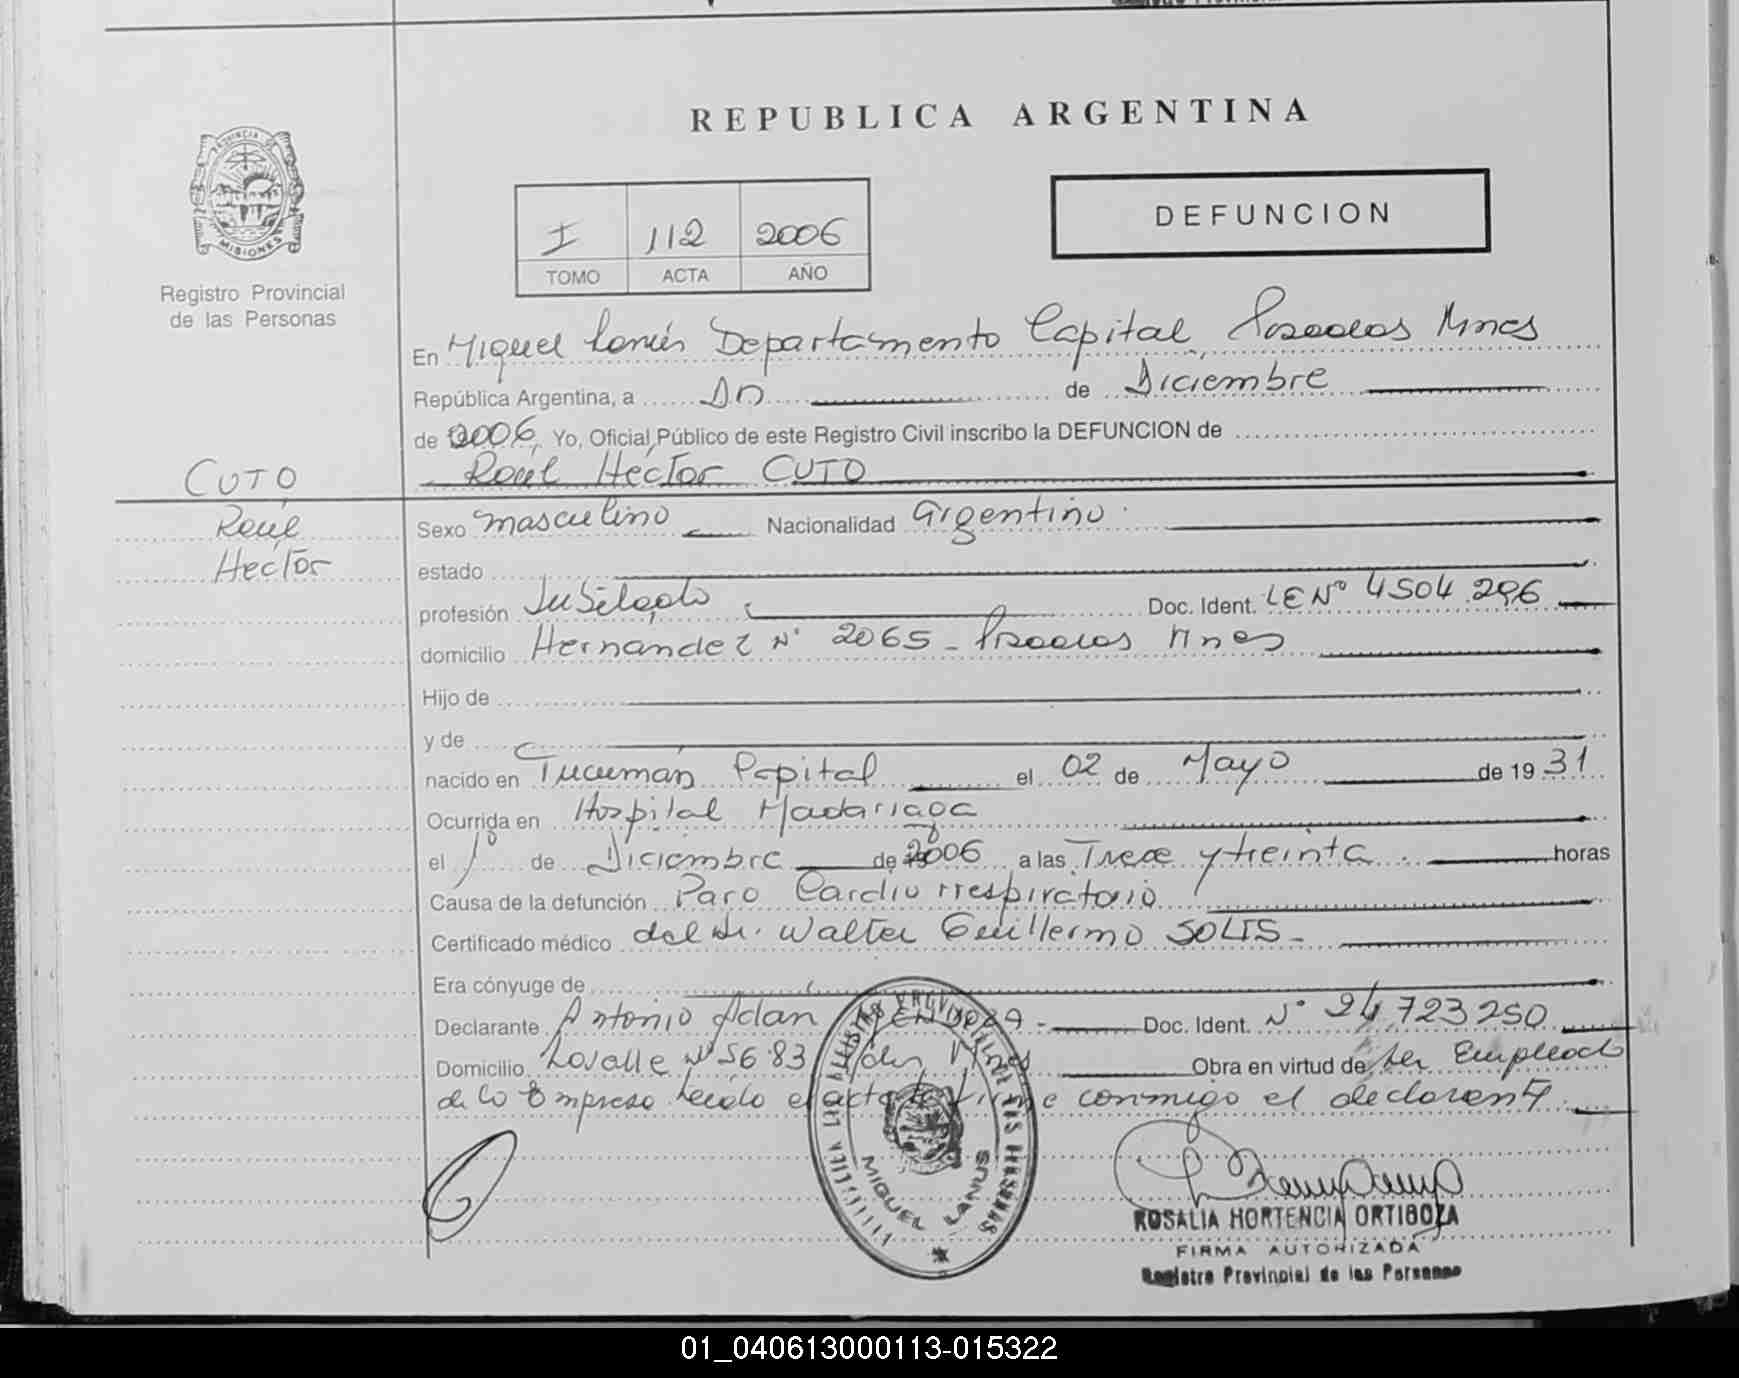 REPUBLICA ARGENTINA
PROVINCIA
MISIONES
Registro Provincial
de las Personas
I 112 2006
TOMO ACTA AÑO
DEFUNCION
En Miguel Lanús Departamento Capital, Posadas Mnes
República Argentina, a Dos de Diciembre
de 2006, Yo, Oficial Público de este Registro Civil inscribo la DEFUNCION de
Raúl Héctor CUTO
CUTO
Raúl
Héctor
Sexo masculino Nacionalidad argentino
estado
profesión Jubilado Doc. Ident. LE Nº 4504296
domicilio Hernandez Nº 2065 - Posadas Mnes
Hijo de
y de
nacido en Tucumán Capital el 02 de Mayo de 1931
Ocurrida en Hospital Madariaga
el 1º de Diciembre de 2006 a las Trece y treinta horas
Causa de la defunción Paro Cardiorrespiratorio
Certificado médico del Dr. Walter Guillermo SOLIS -
Era cónyuge de
Declarante Antonio Adan Doc. Ident. Nº 24.723250
Domicilio Lavalle Nº 5683 Mnes Obra en virtud de ser Empleado
de la Empresa leída el acta firme conmigo el declarante
MIGUEL LANUS
ROSALIA HORTENCIA ORTIGOZA
FIRMA AUTORIZADA
Registro Provincial de las Personas
01_040613000113-015322